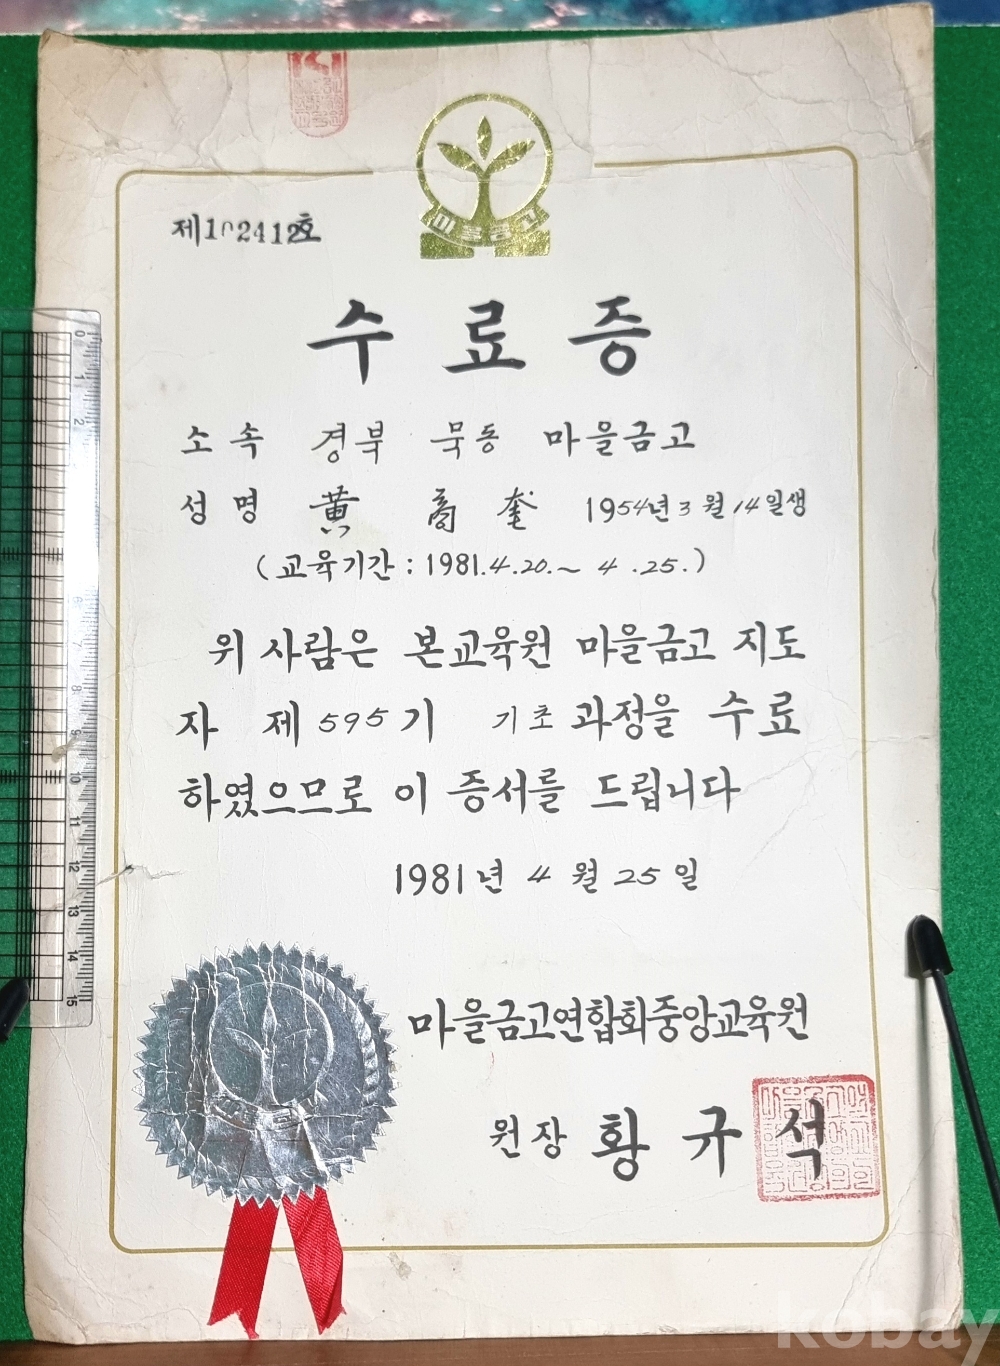 마을금고
제102412호
수료증
소속 경북 묵동 마을금고
성명 黃 裔 奎 1954년 3월 14일생
(교육기간 : 1981.4.20.~ 4.25.)
위 사람은 본교육원 마을금고 지도
자 제 595 기 기초 과정을 수료
하였으므로 이 증서를 드립니다
1981년 4월 25일
마을금고연합회중앙교육원
원장 황규석
0 1 2 8 9 10 11 12 13 14 15
kobay